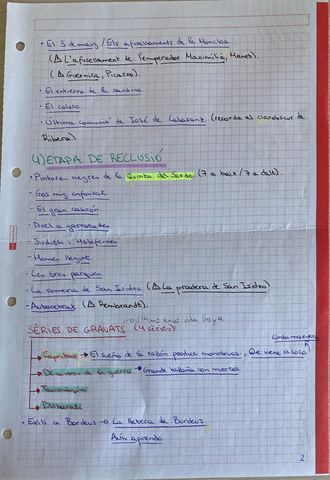 · El 3 de maig / Els afusellaments de la Moncloa
(△ L'afusellament de l'emperador Maximilià, Manet).
(△ Guernica, Picasso).
· El entierro de la sardina
· El coloso
· Última comunió de José de Calasanz (recorda al clarobscur de
Ribera)
4) ETAPA DE RECLUSIÓ
· Pintures negres de la Quinta del Sordo (7 a baix / 7 a dalt).
- Gos mig enfonsat
- El gran cabrón
- Duel a garrotades
- Judith i Holofernes
- Homes llegint
- Les tres parques
- La romeria de San Isidro (△ La pradera de San Isidro)
- Autoretrat (△ Rembrandt).
→ últims anys vida Goya
SÈRIES DE GRAVATS (4 sèries)
Linda maestra
Caprichos → El sueño de la razón produce monstruos, Que viene el coco
Desastres de la guerra → Grande hazaña con muertos
Tauromaquia
Disbarats
· Exili a Bordeus → La lletera de Bordeus.
Aún aprendo.
2